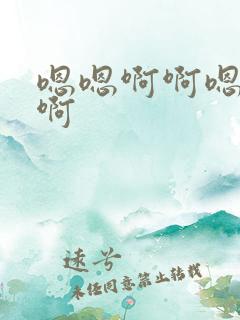 嗯嗯啊啊嗯
啊
逺兮
未经同意禁止转载